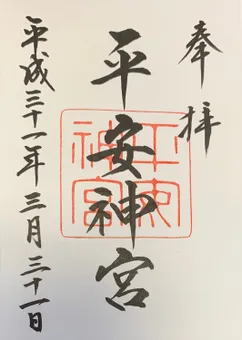 奉拝
平安神宮
平安神宮
平成三十一年三月三十一日